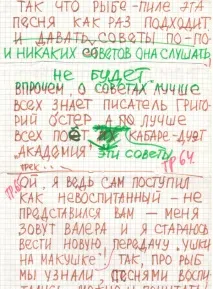 ТАК ЧТО РЫБЕ-ПИЛЕ ЭТА
ПЕСНЯ КАК РАЗ ПОДХОДИТ
И ДАВАТЬ СОВЕТЫ ПО-ПО-
И НИКАКИХ СОВЕТОВ ОНА СЛУШАТЬ
НЕ БУДЕТ.
ВПРОЧЕМ, О СОВЕТАХ ЛУЧШЕ
ВСЕХ ЗНАЕТ ПИСАТЕЛЬ ГРИГО-
РИЙ ОСТЕР, А ЛУЧШЕ
ВСЕХ КАБАРЕ-ДУЭТ
"АКАДЕМИЯ" ЭТИ СОВЕТЫ
ТРЕК... ТР 64
ОЙ, Я ВЕДЬ САМ ПОСТУПИЛ
КАК НЕВОСПИТАННЫЙ - НЕ
ПРЕДСТАВИЛСЯ ВАМ - МЕНЯ
ЗОВУТ ВАЛЕРА И Я СТАРАЮСЬ
ВЕСТИ НОВУЮ ПЕРЕДАЧУ "УШКИ
НА МАКУШКЕ". ТАК, ПРО РЫБ
МЫ УЗНАЛИ, ПЕСНЯМИ ВОСПИ-